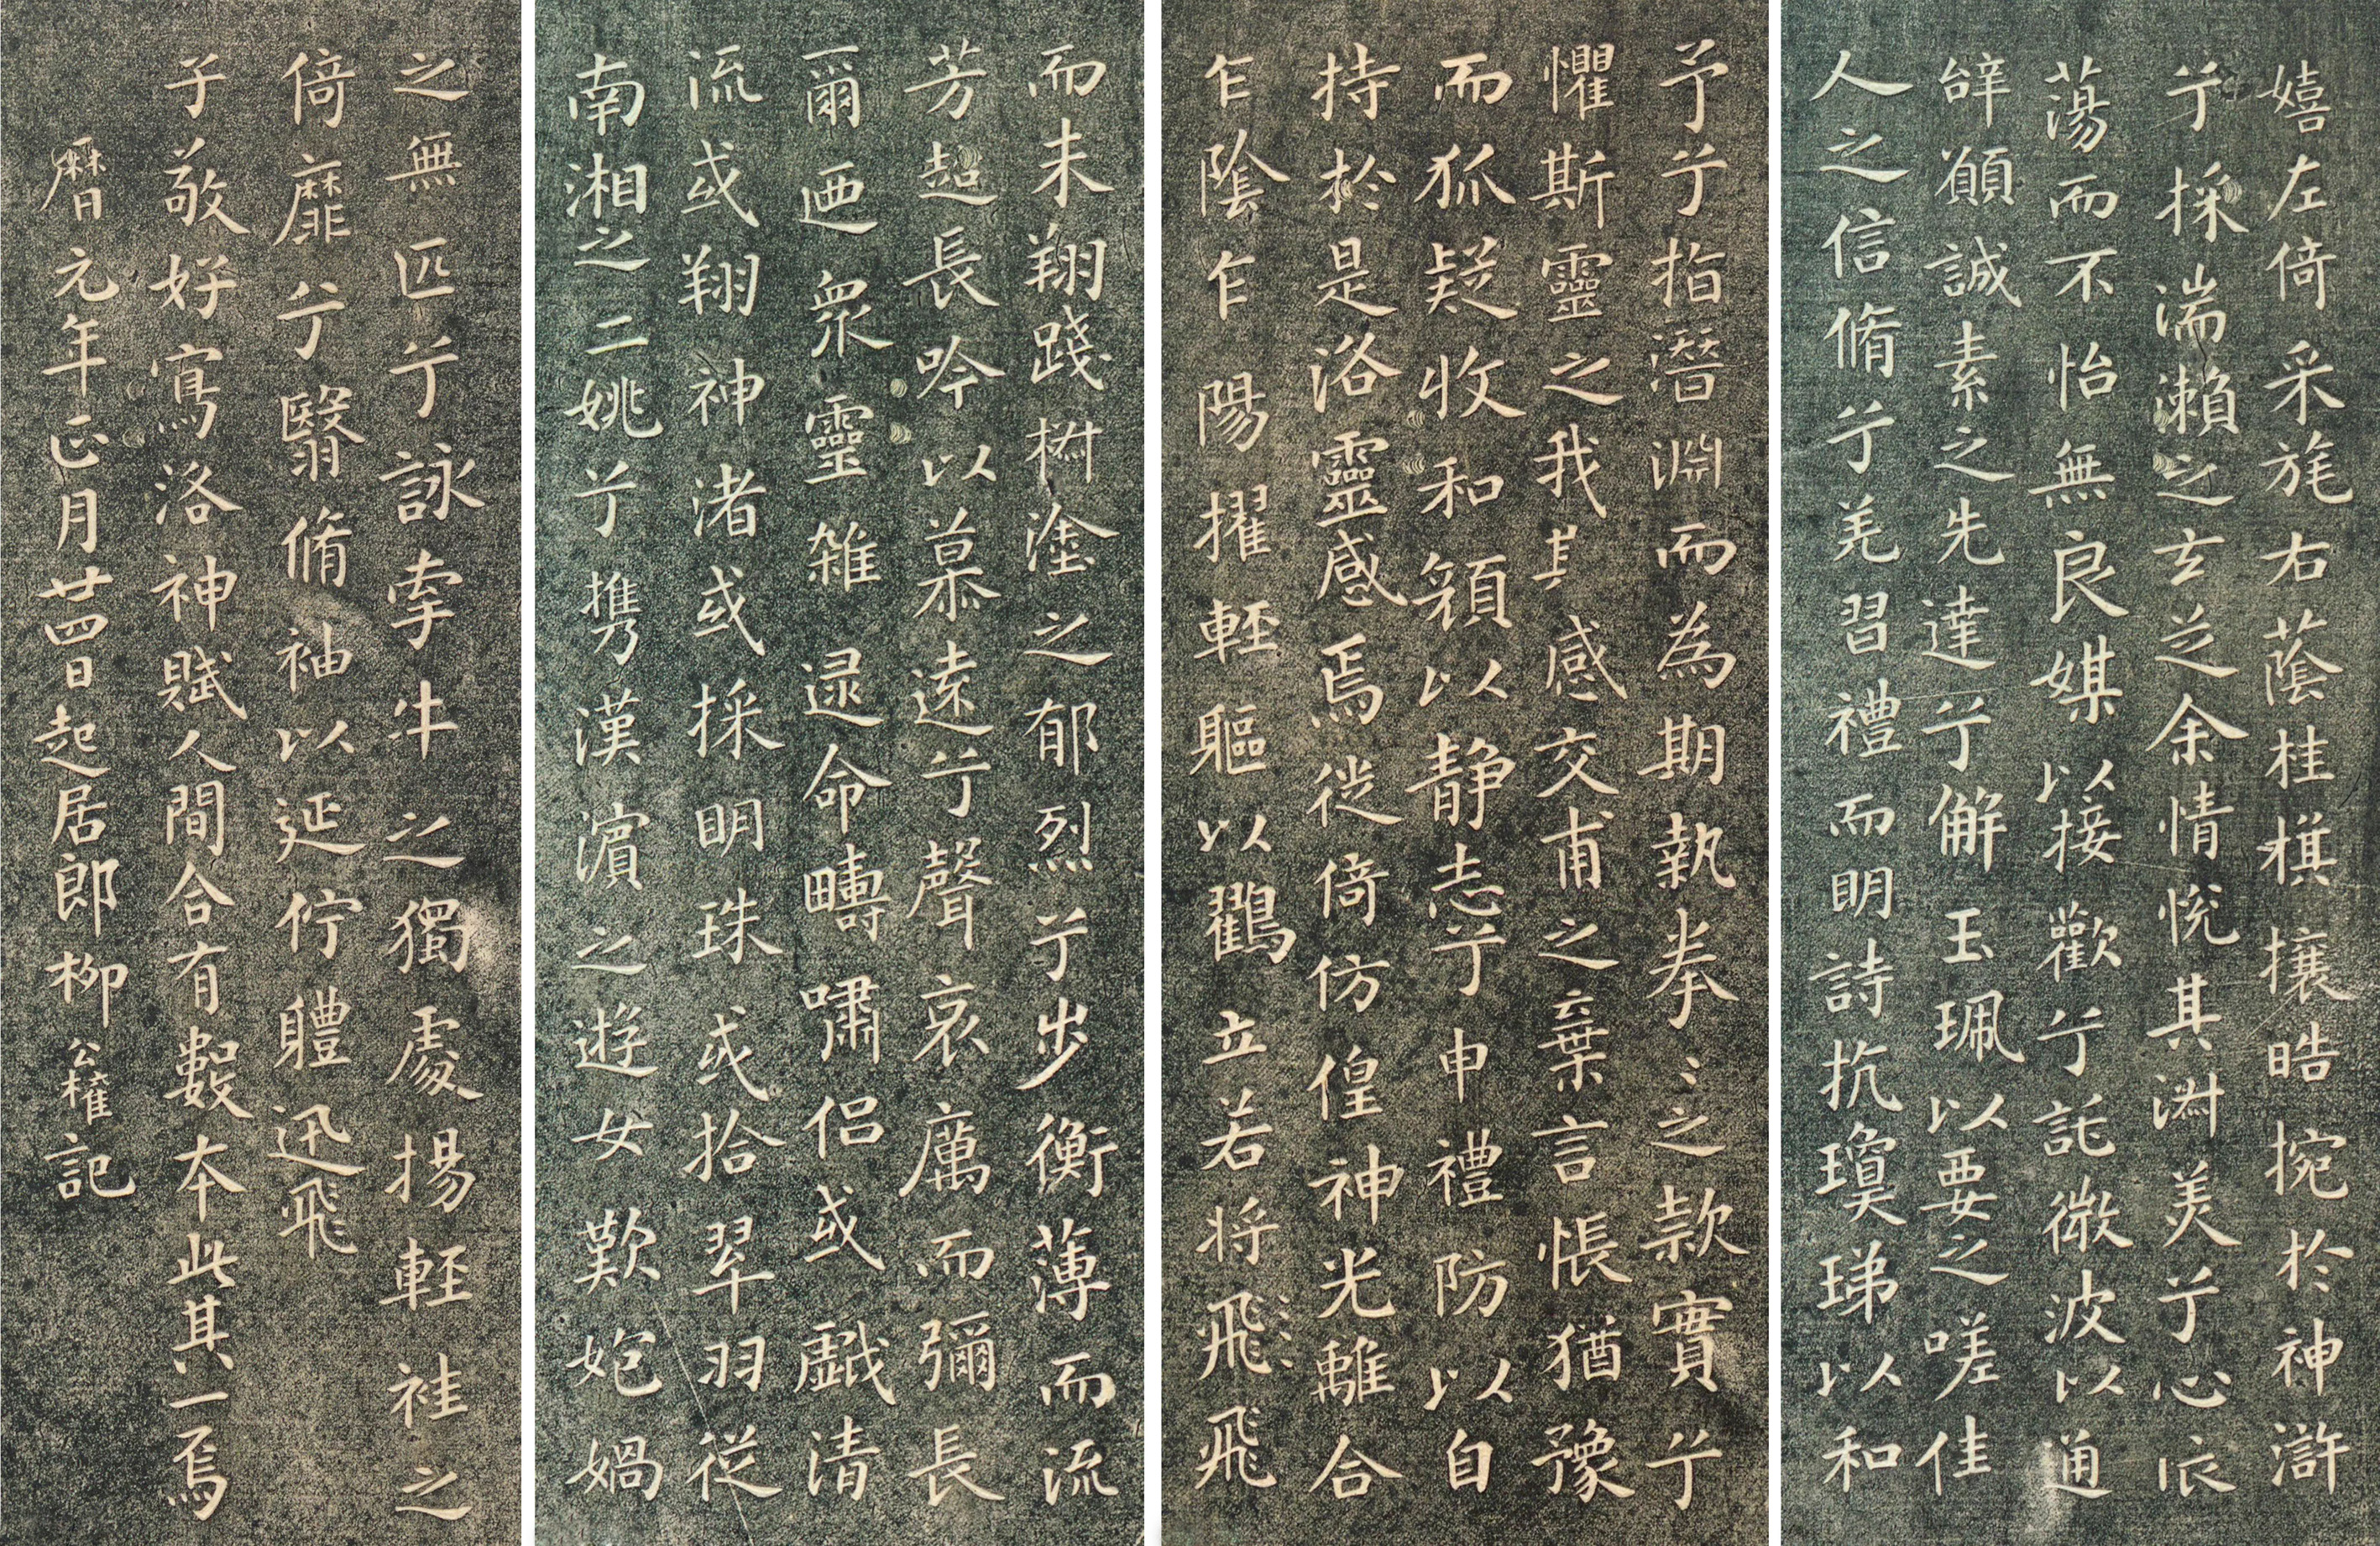 嬉左倚采旄右蔭桂棋攘皓捥於神滸
兮採湍瀨之玄芝余情悅其淋美兮心依
蕩而不怡無良媒以接歡兮託微波以通
辞願誠素之先達兮解玉珮以要之嗟佳
人之信脩兮羌習禮而明詩抗瓊珶以和
予兮指潛淵而為期執拳〻之款實兮
懼斯靈之我其感交甫之棄言悵猶豫
而狐疑收和顏以静志兮申禮防以自
持於是洛靈感焉徙倚仿偟神光離合
乍陰乍陽擢軽軀以鸛立若将飛飛
而未翔踐椒塗之郁烈兮步衡薄而流
芳超長吟以慕遠兮聲哀厲而彌長
爾迺衆靈雜遝命疇嘯侣或戯清
流或翔神渚或採明珠或拾翠羽從
南湘之二姚兮携漢濵之遊女歎匏媧
之無匹兮詠牽牛之獨處揚軽袿之
倚靡兮翳脩袖以延佇軆迅飛
子敬好寫洛神賦人間合有數本此其一焉
曆元年正月廿四日起居郎柳公權記